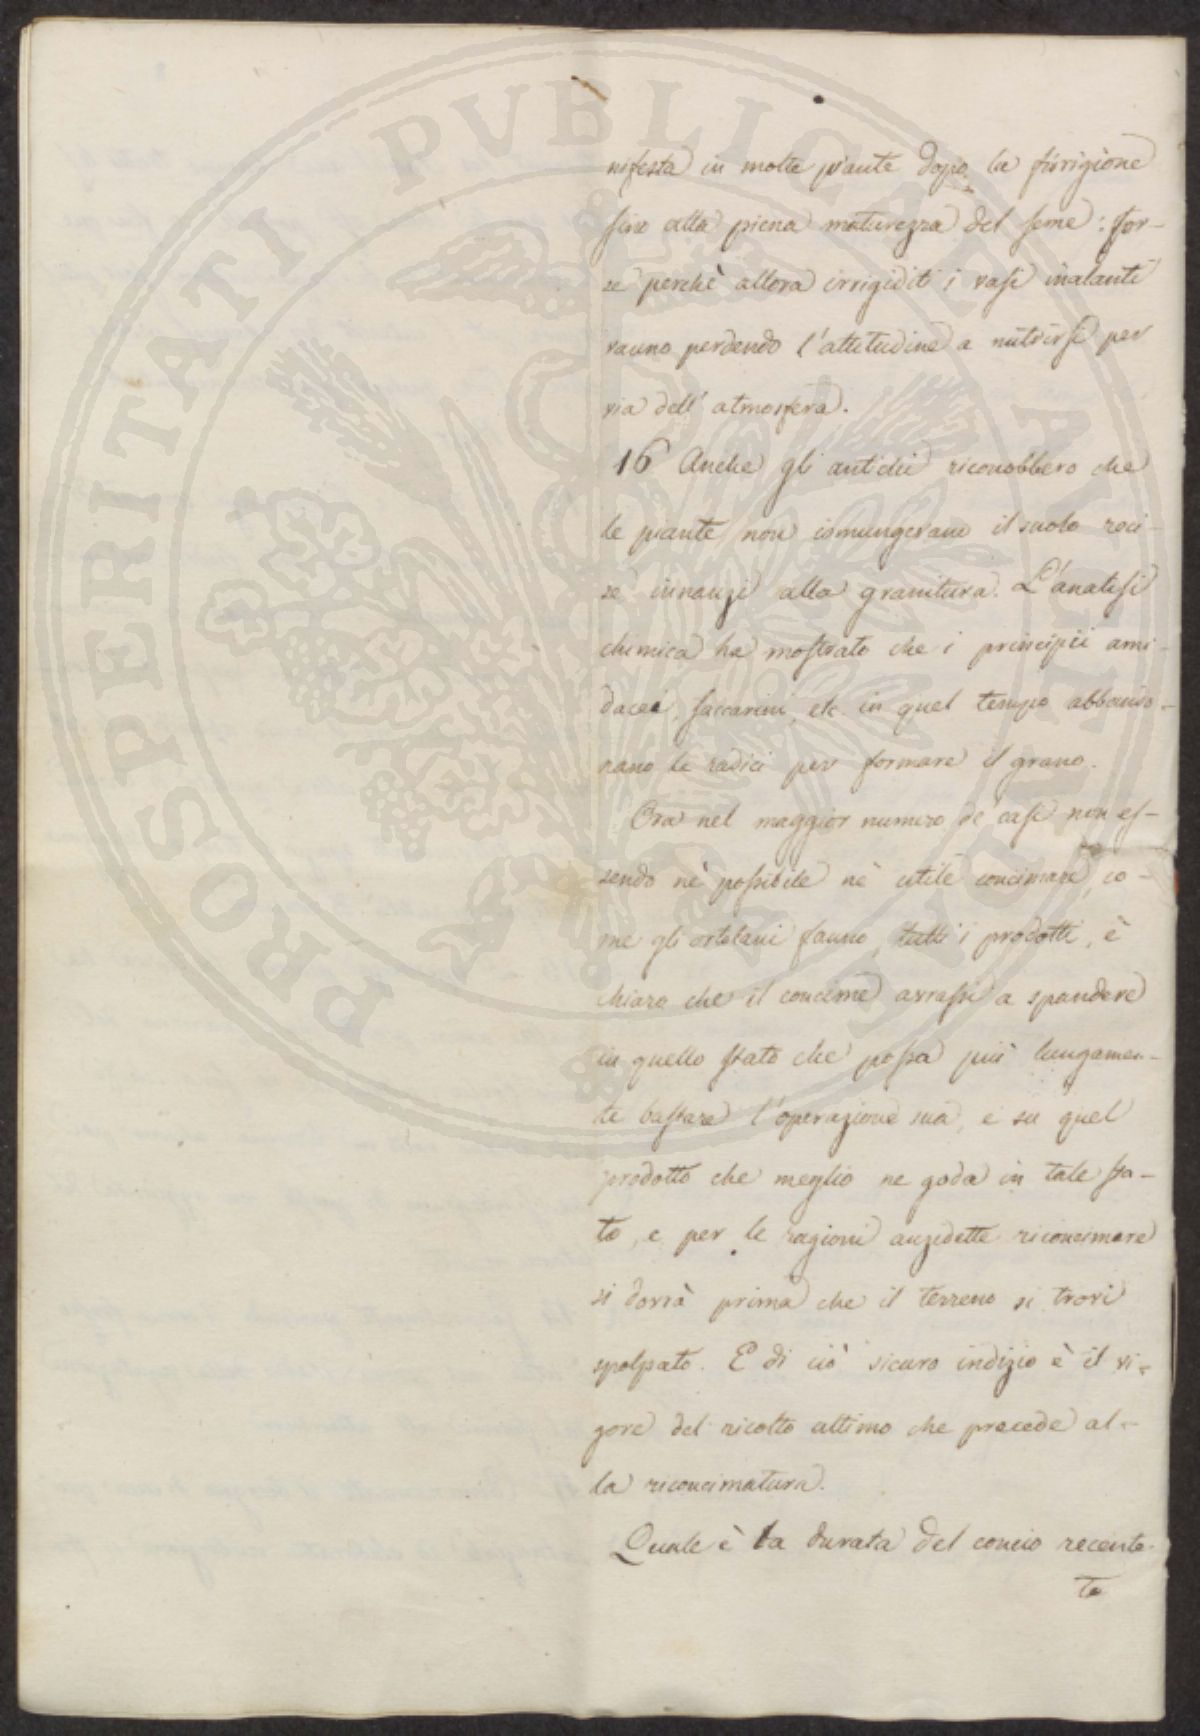 PROSPERITATI PVBLICAE AVGENDAE
nifesta in molte piante dopo la fiorigione
sino alla piena maturezza del seme: for-
se perchè allora irrigiditi i vasi inalanti
vanno perdendo l'attitudine a nutrirsi per
via dell'atmosfera.
16 Anche gli antichi riconobbero che
le piante non ismungevano il suolo reci-
se innanzi alla granitura. L'analisi
chimica ha mostrato che i principii ami-
dacei, saccarini, etc. in quel tempo abbando-
nano le radici per formare il grano.
Ora nel maggior numero de' casi non es-
sendo nè possibile nè utile concimare, co-
me gli ortolani fanno, tutti i prodotti, è
chiaro che il concime avrassi a spandere
in quello stato che possa più lungamen-
te bastare l'operazione sua, e su quel
prodotto che meglio ne goda in tale sta-
to, e per le ragioni anzidette riconcimare
si dovrà prima che il terreno si trovi
spolpato. E di ciò sicuro indizio è il vi-
gore del ricolto ultimo che precede al-
la riconcimatura.
Quale è la durata del concio recente-
te